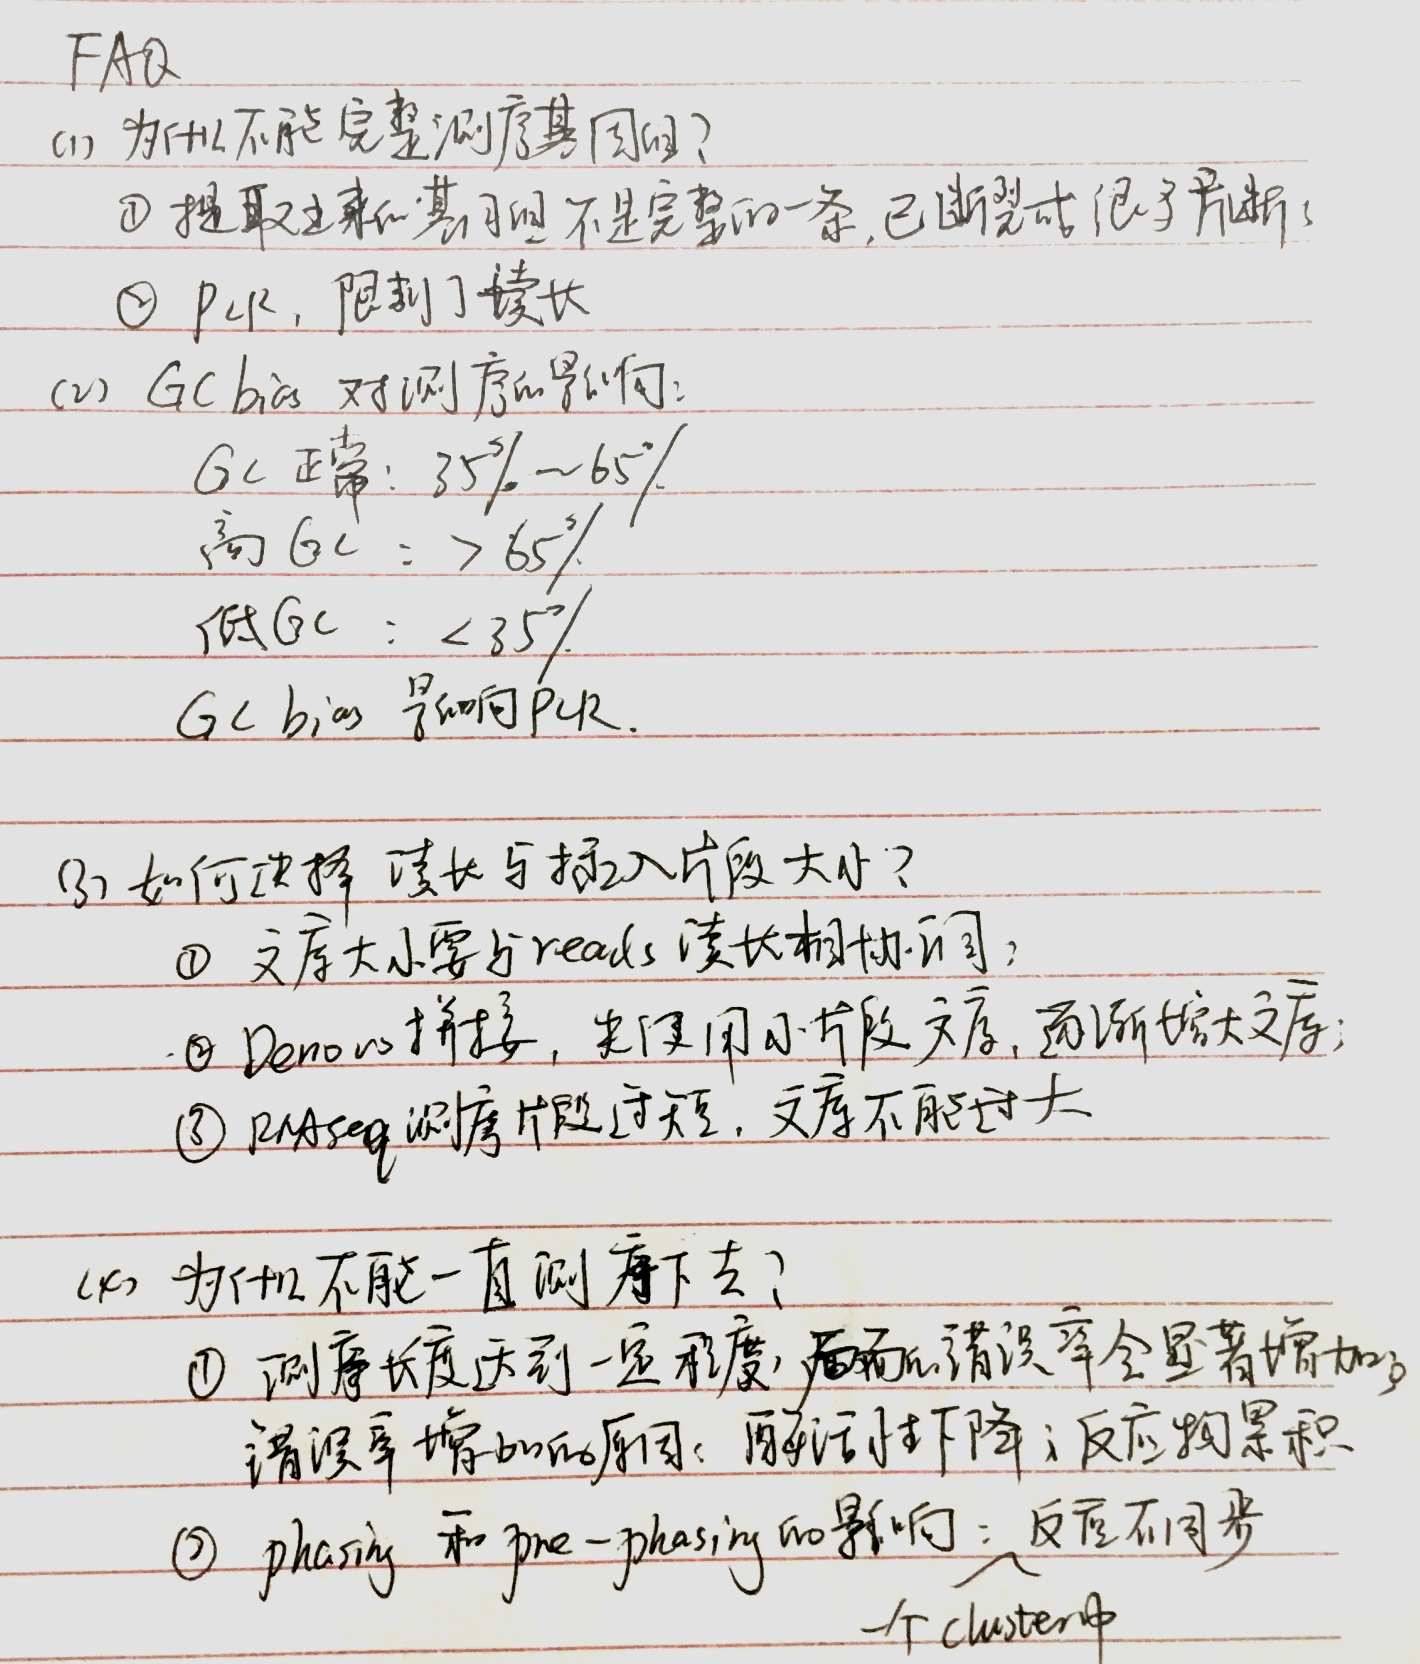 FAQ
(1) 为什么不能完整测序基因组?
① 提取出来的基因组不是完整的一条,已断裂成很多片断;
② PCR, 限制了读长
(2) GC bias 对测序的影响:
GC 正常: 35%~65%
高GC : >65%
低GC : <35%
GC bias 影响PCR.
(3) 如何选择 读长与插入片段大小?
① 文库大小要与reads读长相协调;
② Denovo拼接, 先使用小片段文库, 逐渐增大文库;
③ RNAseq测序片段过短, 文库不能过大
(4) 为什么不能一直测序下去?
① 测序长度达到一定程度, 后面的错误率会显著增加;
错误率增加的原因: 酶活性下降; 反应物累积
② phasing 和 pre-phasing的影响: 反应不同步
一个cluster中